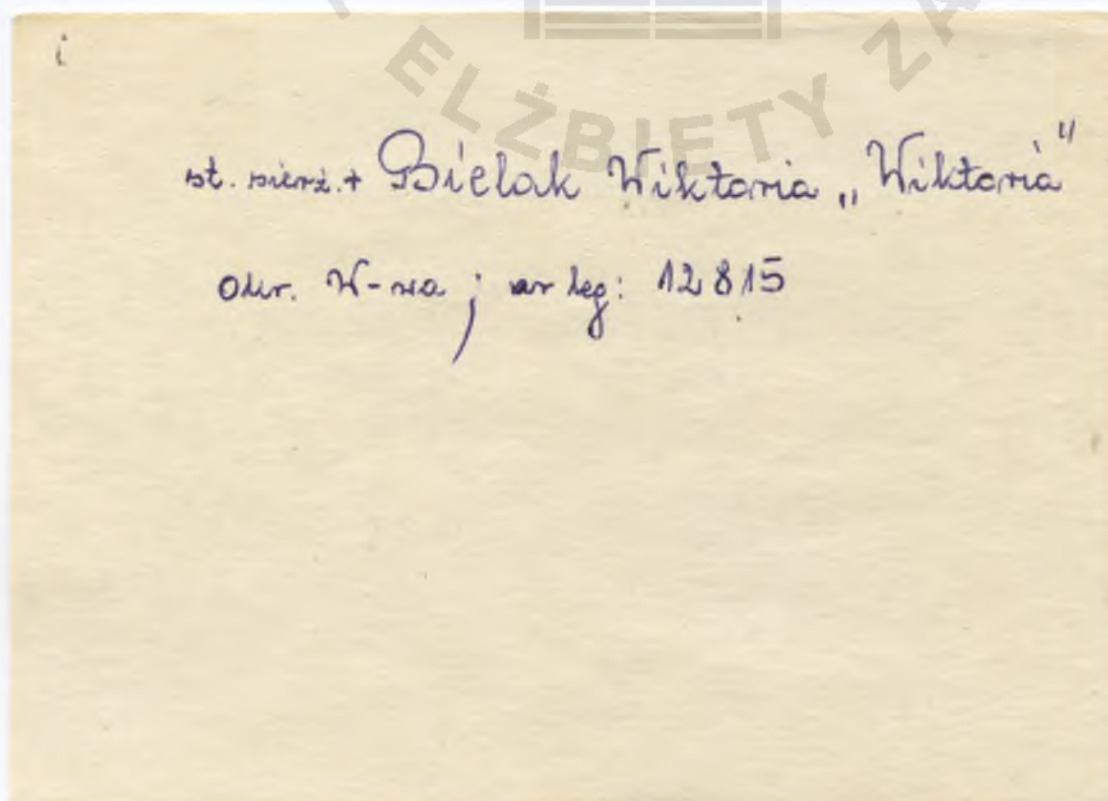 ELŻBIETY ZA
i
st. sierż. + Bielak Wiktoria „Wiktoria"
Okr. W-wa ; nr leg: 12815